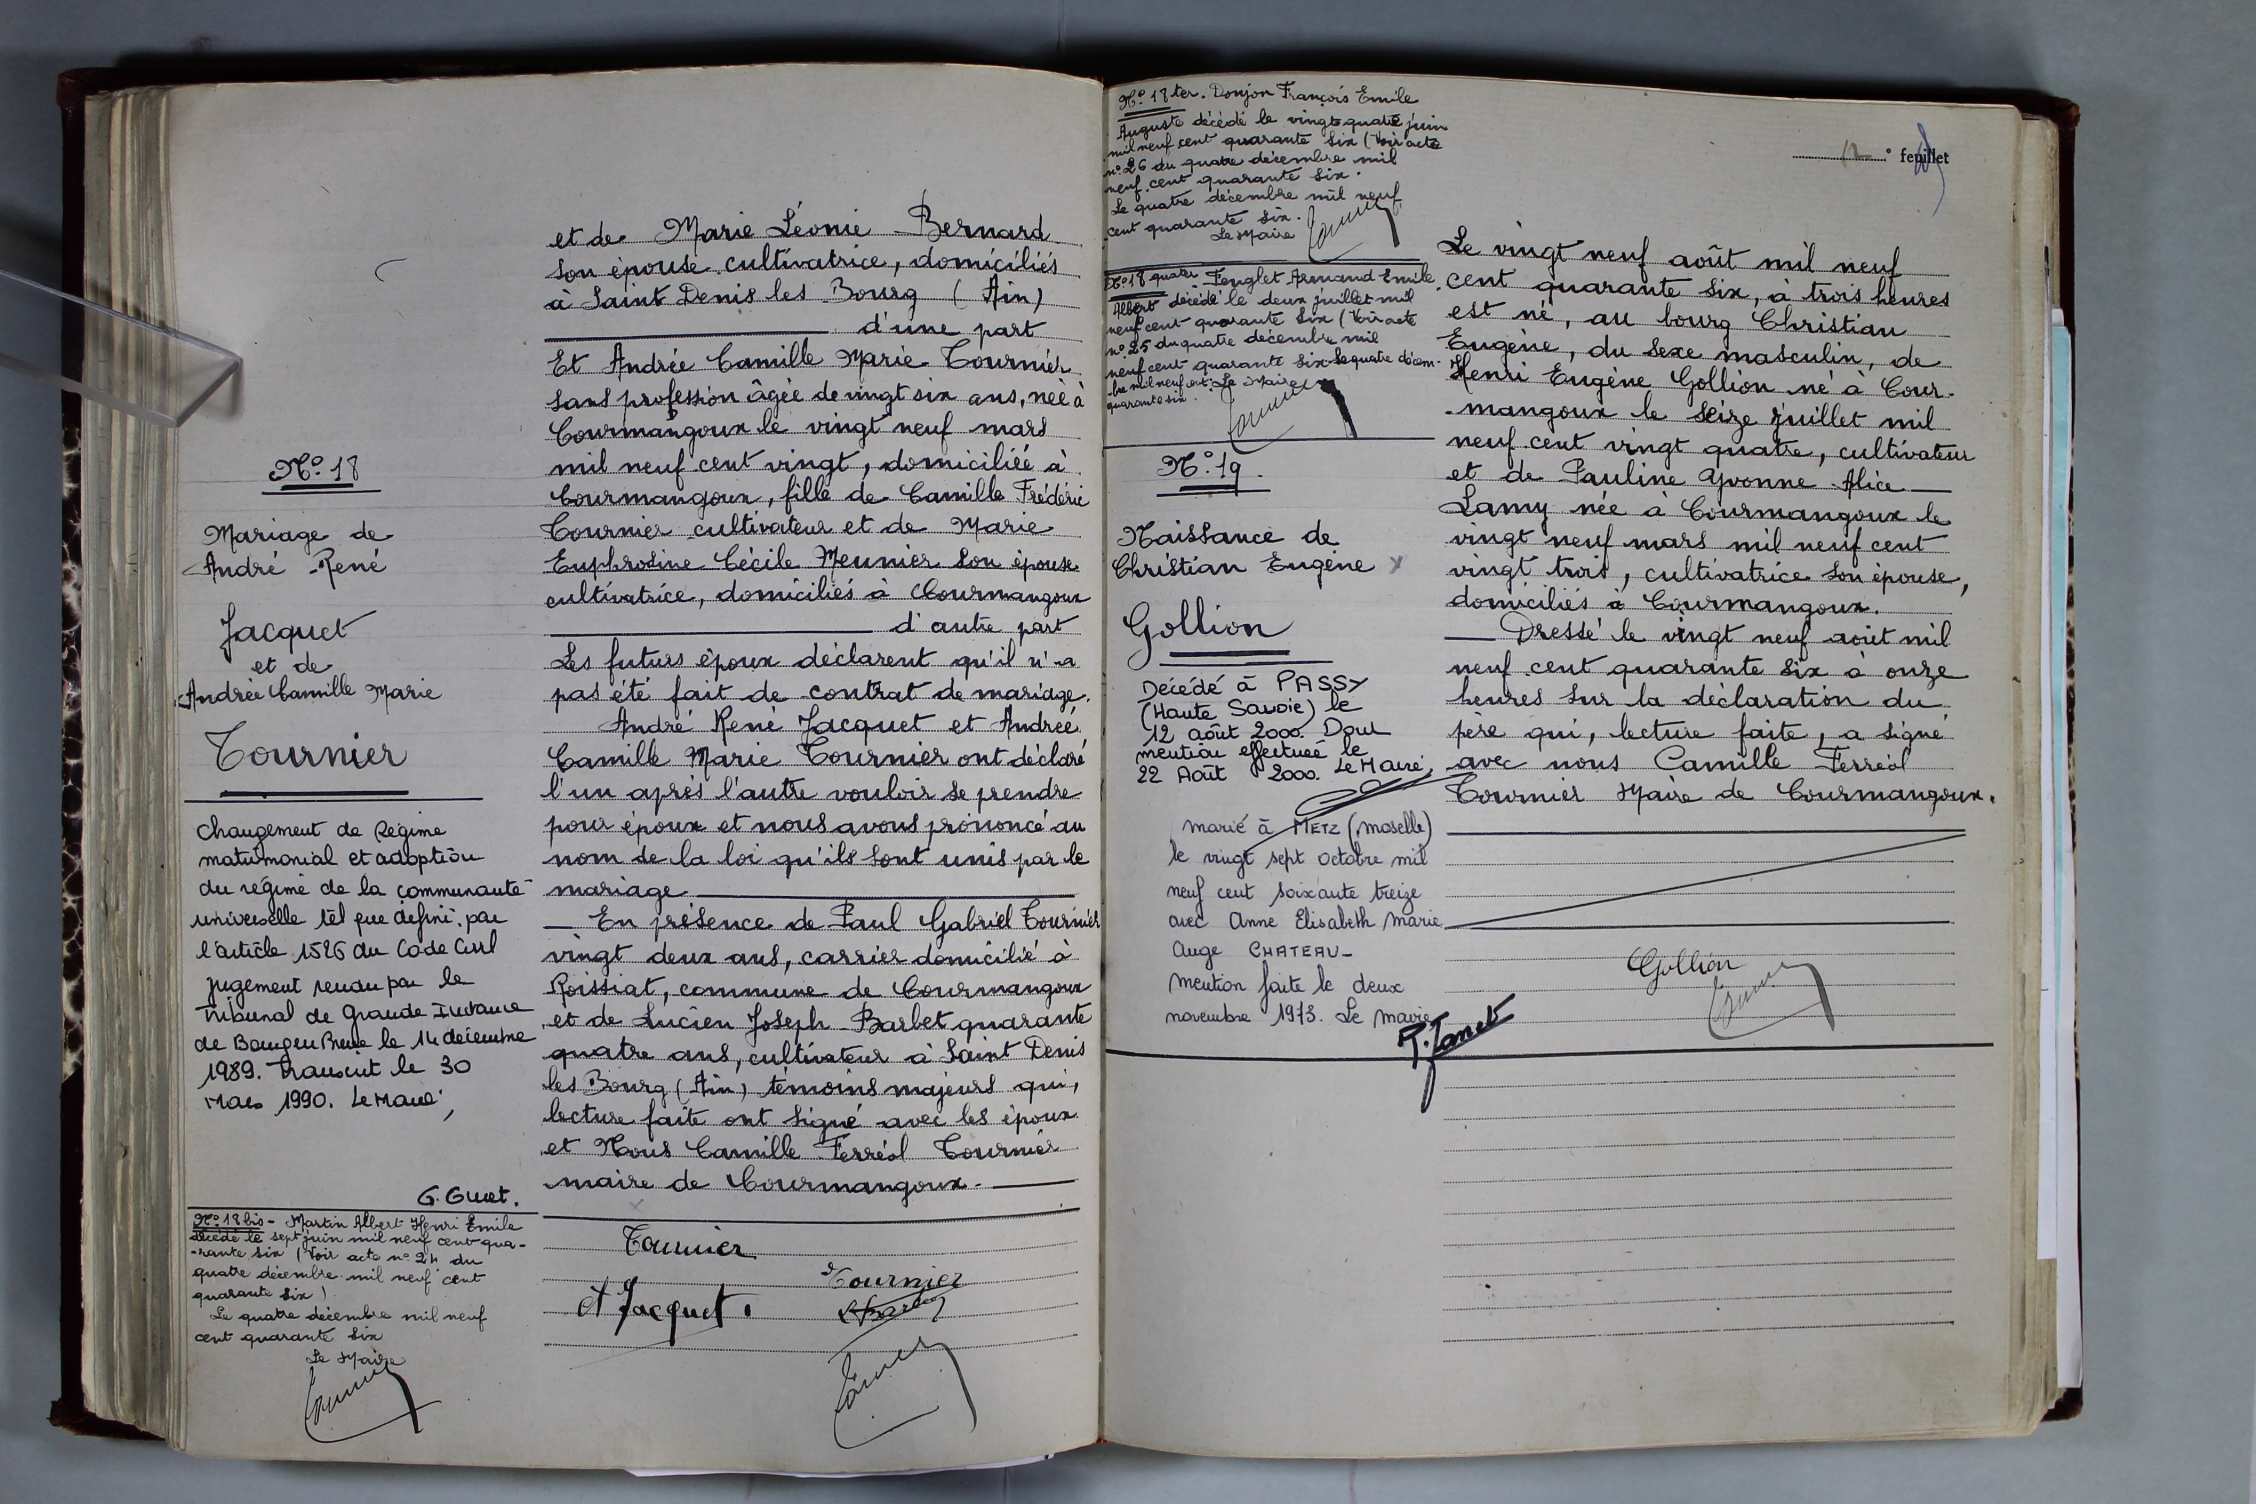 N° 18
Mariage de
André René
Jacquet
et de
Andrée Camille Marie
Tournier
Changement de Régime
matrimonial et adoption
du régime de la communauté
universelle tel que défini par
l'article 1526 du Code Civil
jugement rendu par le
Tribunal de Grande Instance
de Bourg en Bresse le 14 décembre
1989. Transcrit le 30
Mars 1990. Le Maire,
G. Guet.
N° 18 bis - Martin Albert Henri Emile
décédé le sept juin mil neuf cent qua-
-rante six (Voir acte n° 24 du
quatre décembre mil neuf cent
quarante six)
Le quatre décembre mil neuf
cent quarante six
Le Maire
Tournier
et de Marie Léonie Bernard
son épouse cultivatrice, domiciliés
à Saint Denis les Bourg (Ain)
d'une part
Et Andrée Camille Marie Tournier
sans profession âgée de vingt six ans, née à
Courmangoux le vingt neuf mars
mil neuf cent vingt, domiciliée à
Courmangoux, fille de Camille Frédéric
Tournier cultivateur et de Marie
Euphrosine Cécile Meunier son épouse
cultivatrice, domiciliés à Courmangoux
d'autre part
Les futurs époux déclarent qu'il n'a
pas été fait de contrat de mariage.
André René Jacquet et Andrée
Camille Marie Tournier ont déclaré
l'un après l'autre vouloir se prendre
pour époux et nous avons prononcé au
nom de la loi qu'ils sont unis par le
mariage
En présence de Paul Gabriel Tournier
vingt deux ans, carrier domicilié à
Roissiat, commune de Courmangoux
et de Lucien Joseph Barbet quarante
quatre ans, cultivateur à Saint Denis
les Bourg (Ain) témoins majeurs qui,
lecture faite ont signé avec les époux
et Nous Camille Ferréol Tournier
maire de Courmangoux.
Tournier
Tournier
A Jacquet
Tournier
N° 18 ter. Donjon François Emile
Auguste décédé le vingt quatre juin
mil neuf cent quarante six (Voir acte
n° 26 du quatre décembre mil
neuf cent quarante six.
Le quatre décembre mil neuf
cent quarante six.
Le Maire
Tournier
N° 18 quater Fenglet Armand Emile
Albert décédé le deux juillet mil
neuf cent quarante six (Voir acte
n° 25 du quatre décembre mil
neuf cent quarante six. Le quatre décem-
-bre mil neuf cent Le Maire
quarante six.
Tournier
N° 19.
Naissance de
Christian Eugène
Gollion
Décédé à PASSY
(Haute Savoie) le
12 août 2000. Dont
mention effectuée le
22 Août 2000. Le Maire,
Marié à METZ (Moselle)
le vingt sept octobre mil
neuf cent soixante treize
avec Anne Elisabeth Marie
Ange CHATEAU-
Mention faite le deux
novembre 1973. Le Maire
12 ° feuillet
Le vingt neuf août mil neuf
cent quarante six, à trois heures
est né, au bourg Christian
Eugène, du sexe masculin, de
Henri Eugène Gollion né à Cour-
-mangoux le seize juillet mil
neuf cent vingt quatre, cultivateur
et de Pauline Yvonne Alice
Lamy née à Courmangoux le
vingt neuf mars mil neuf cent
vingt trois, cultivatrice son épouse,
domiciliés à Courmangoux.
Dressé le vingt neuf août mil
neuf cent quarante six à onze
heures sur la déclaration du
père qui, lecture faite, a signé
avec nous Camille Ferréol
Tournier Maire de Courmangoux.
Gollion
Tournier